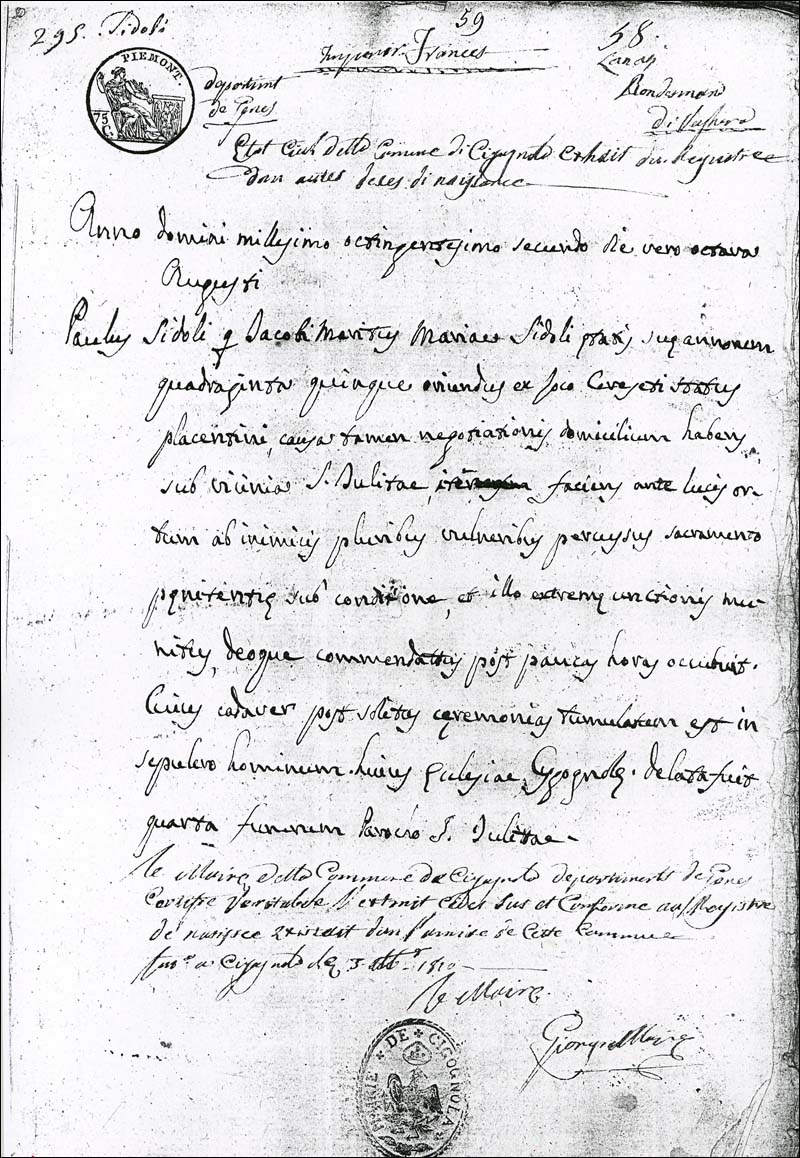 59
295. Sidoli
58.
PIEMONT.
75 C.
Francés
departiment
de Genes
Etat Civil della Comune di Cigognola Extrait du Registre
dan autes de naissance
Anno domini millesimo octingentesimo secundo die vero octava
Augusti
Paulus Sidoli q Jacobi Maritus Mariae Sidoli etatis sue annorum
quadraginta quinque oriundus ex loco Cereseti status
placentini, causa tamen negotiationis domicilium habens
sub vicinia S. Julitae, faciens ante lucis or-
tum ab inimicis pluribus vulneribus percussus sacramento
penitentie sub conditione, et illo extreme unctionis mu-
nitus, deoque commendatus post paucas horas occubuit.
Cuius cadaver post solitas ceremonias tumulatum est in
sepulcro hominum huius Eclesiae Cygognole. delata fuit
quarta funerum Paroco S. Julittae -
le Maire della Commune de Cigognola departiment de Genes
Certifie Veritable l'extrait Cades Sus et Conforme au Registre
de dan de Cette Commune
a Cigognola 3 1810
le Maire
Giorgi Maire
MAIRIE * DE * CIGOGNOLA